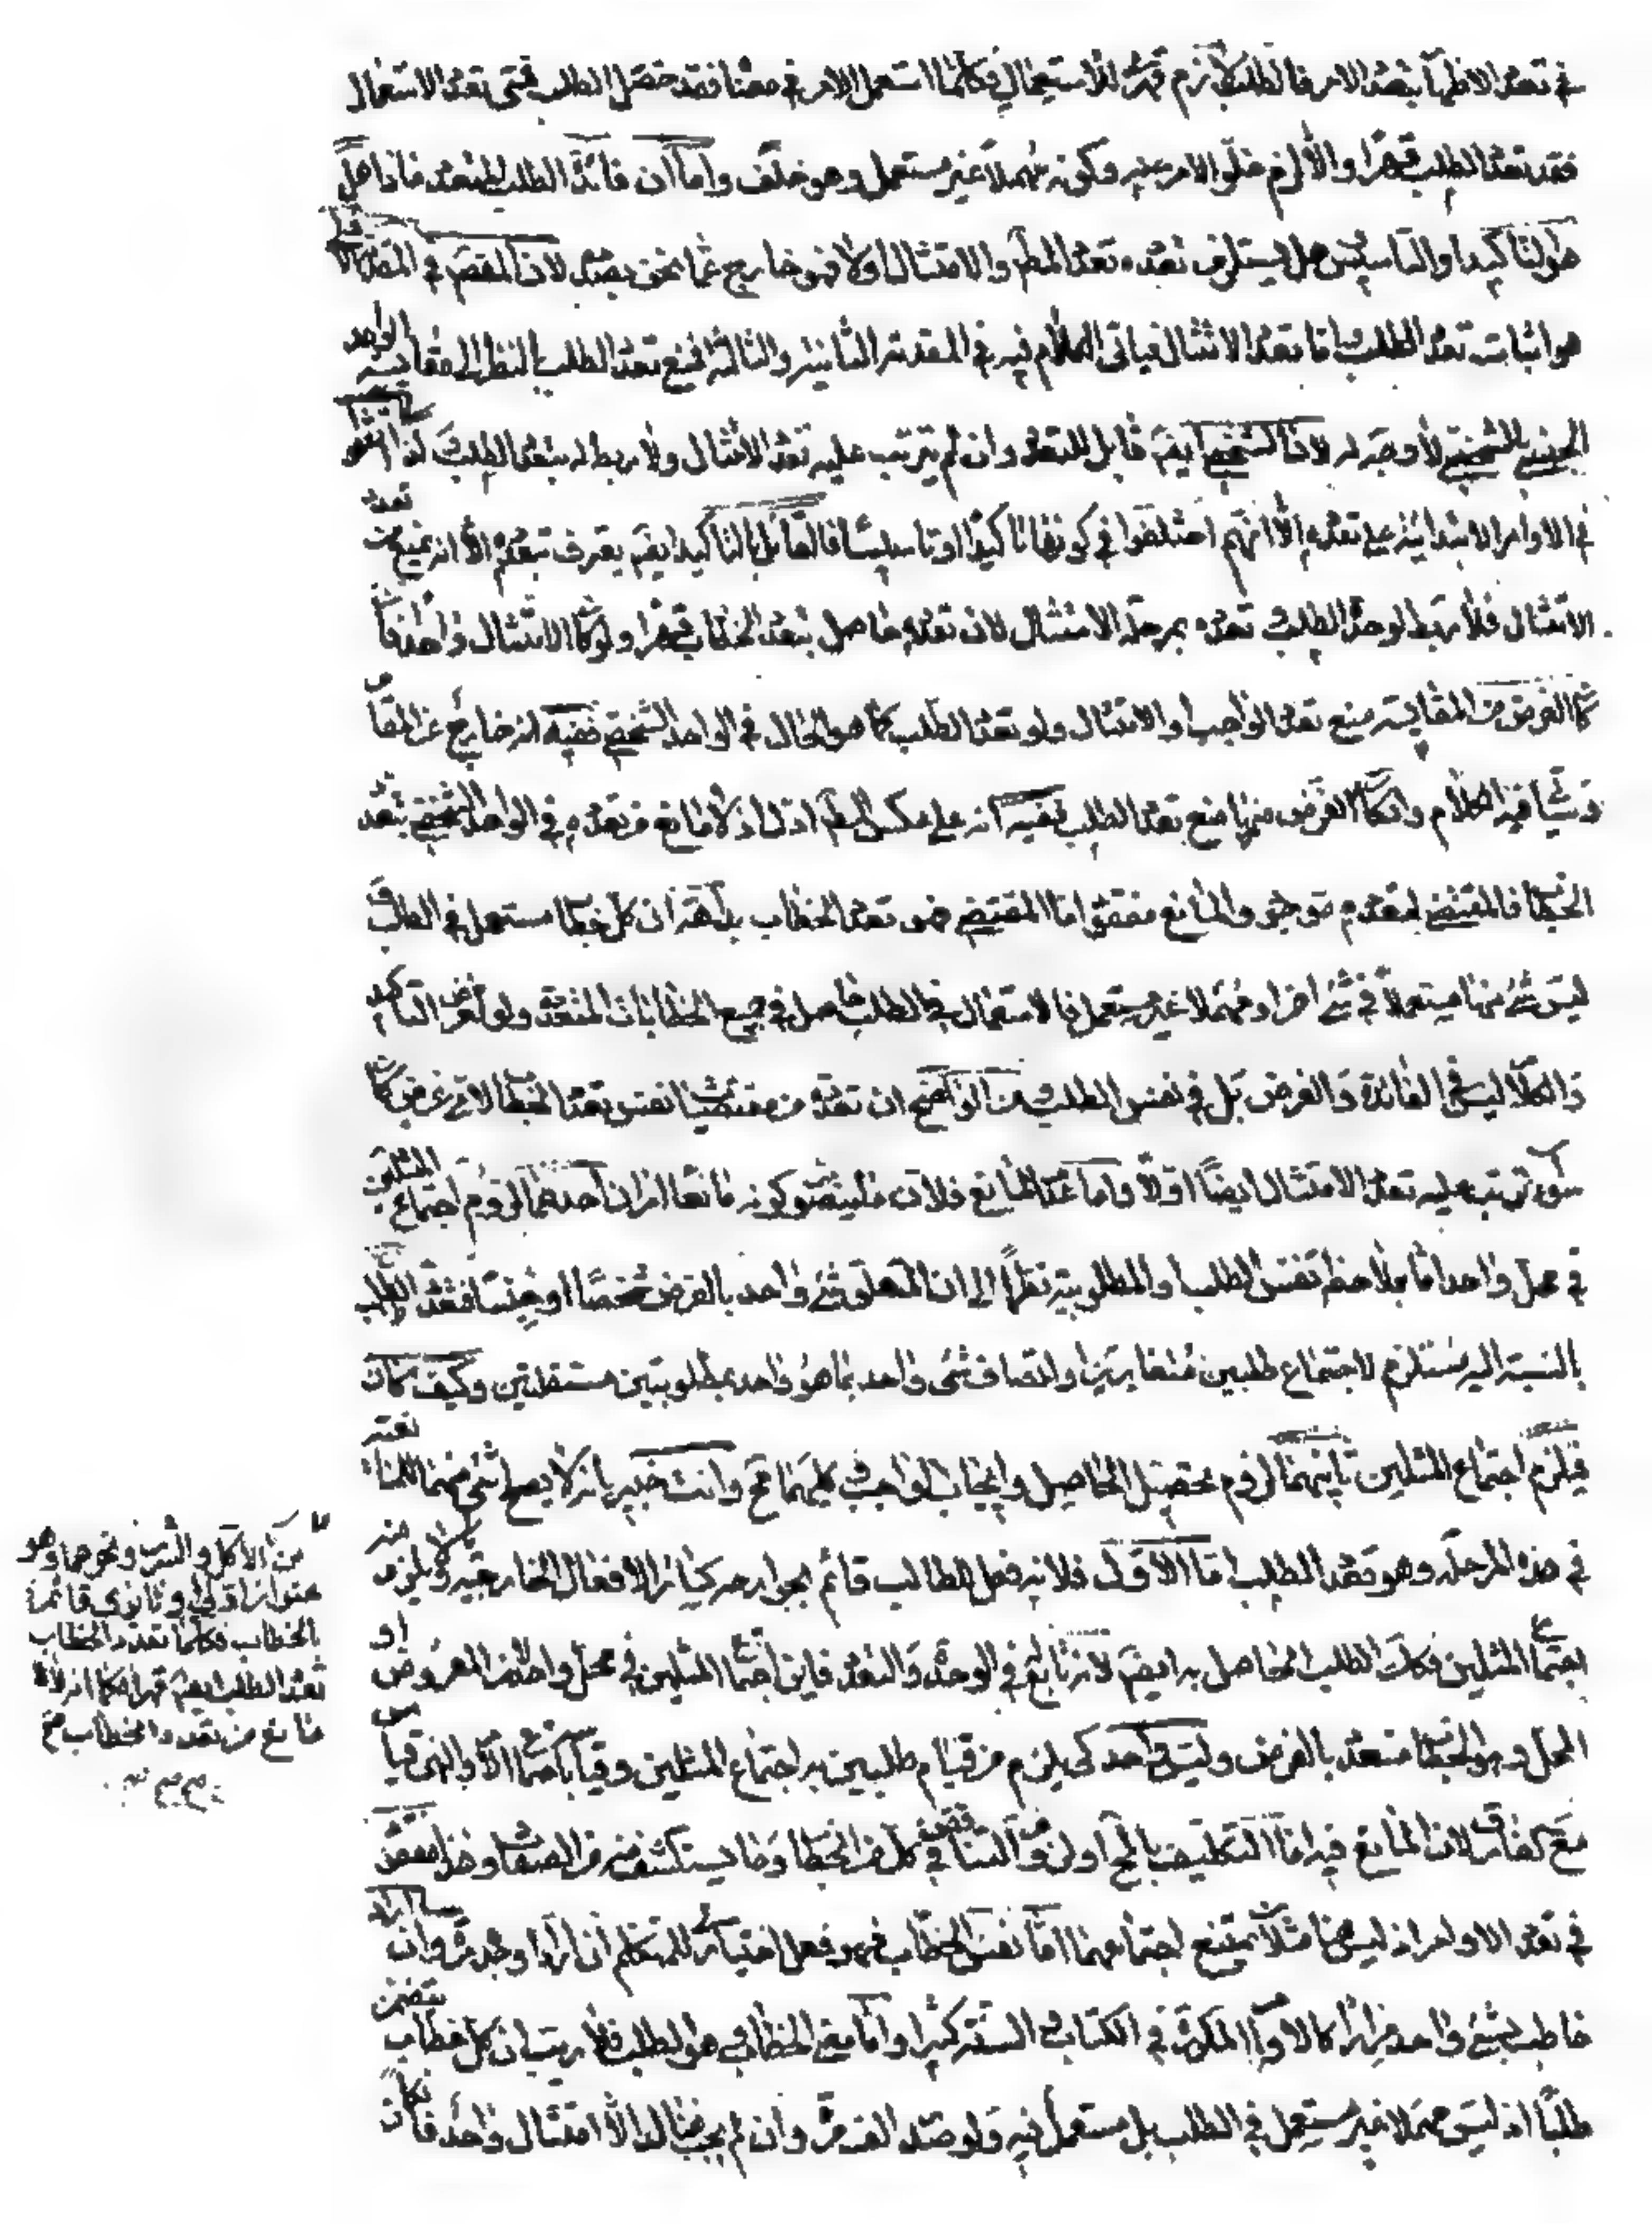 في تعدد الاظهار بتعدد الامر فالطلب لازم قهرى للاستعمال فكلما استعمل الامر في معناه فقد حصل الطلب فمتى تعدد الاستعمال
فقد تعدد الطلب قهرا والا لزم خلو الامر عنه وكونه مهملا غير مستعمل وهو خلف واما ان فائدة الطلب المتعدد ماذا هل
هو التاكيد او التاسيس هل يستلزم تعدده تعدد المط والامتثال اولا فهو خارج عما نحن بصدده لان المقصود في المقدمة الاولى
هو اثبات تعدد الطلب واما تعدد الامتثال فياتى الكلام فيه في المقدمة الثانية والثالثة فمنع تعدد الطلب بالنظر الى مقايسة الواحد
الجنسى بالشخصى لا وجه له لان الشخصى ايضا قابل للتعدد وان لم يترتب عليه تعدد الامتثال ولا ربط له بتعدد الطلب لذا اتفقوا
في الاوامر الابتدائية على تعدده الا انهم اختلفوا في كونها تاكيدا او تاسيسا فالقائل بالتاكيد ايضا يعترف بتعدده الا انه يمنع من تعدد
الامتثال فلا ربط لوحدة الطلب و تعدده بمرحلة الامتثال لان تعدده حاصل بتعدد الخطاب قهرا ولو كان الامتثال واحدا فان
كان الغرض من المقايسة منع تعدد الواجب او الامتثال ولو تعدد الطلب كما هو الحال في الواحد الشخصى ففيه انه خارج عن المقام
وسياتي فيه الكلام وان كان الغرض منها منع تعدد الطلب ففيه انه على عكس المط ادل اذ لا مانع من تعدده في الواحد الشخصى بتعدد
الخطاب فالمقتضى لتعدده موجود والمانع مفقود اما المقتضى فهو تعدد الخطاب بداهة ان كل خطاب مستعمل في الطلب و
ليس شئ منها مستعملا في شئ اخر او مهملا غير مستعمل فالاستعمال في الطلب حاصل في جميع الخطابات المتعددة ولو لغرض التاكيد
والكلام ليس في الفائدة والغرض بل في نفس الطلب ومن الواضح ان تعدده من مقتضيات نفس تعدد الخطاب لاى غرض كان
سواء ترتب عليه تعدد الامتثال ايضا اولا واما عدم المانع فلان ما يتصور كونه مانعا امران احدهما لزوم اجتماع المثلين
في محل واحد اما بملاحظة نفس الطلب والمطلوبية نظرا الى ان المتعلق شئ واحد بالفرض شخصا او جنسا فتعدد الطلب
بالنسبة اليه مستلزم لاجتماع طلبين متغايرين او اتصاف شئ واحد بما هو واحد بمطلوبيتين مستقلتين وكيف كان
فيلزم اجتماع المثلين ثانيهما لزوم تحصيل الحاصل وايجاب الواجب وكليهما مح وانت خبير بانه لا يصلح شئ منهما للمانعية
في هذه المرحلة وهو تعدد الطلب اما الاول فلانه فعل للطالب قائم بجوارحه كسائر الافعال الخارجية ولا يلزم منه
اجتماع المثلين فكك الطلب الحاصل به ايضا لانه تابع في الوحدة والتعدد فاين اجتماع المثلين في محل واحد مع ان المعروض او
المحل وهو الخطاب متعدد بالفرض وليس بواحد كى يلزم من قيام طلبين به اجتماع المثلين وقياس اجتماع الامر والنهى قياس
مع الفارق لان المانع فيه اما التكليف بالمح او لزوم التناقض في كل من الخطاب وما يستكشف منه من الصفات وهذا مفقود
في تعدد الاوامر اذ ليس هنا مثلان يمتنع اجتماعهما اما نفس الخطاب فهو فعل اختيارى للمتكلم ان اراد اوجده وان
خاطب بشئ واحد مرارا كالاوامر المكررة في الكتاب والسنة كثيرا واما معنى الخطاب وهو الطلب فلا ريب ان كل خطاب يتضمن
طلبا اذ ليس مهملا غير مستعمل في الطلب بل مستعمل فيه ولو صدر الف مرة وان لم يجب هنالك الا امتثال واحد فان كان
من الاكل والشرب ونحوهما وهو
عنوان اولي وثانوى قائم
بالخطاب فكلما تعدد الخطاب
تعدد الطلب ايضا قهرا فكما انه لا
مانع من تعدد الخطاب مع